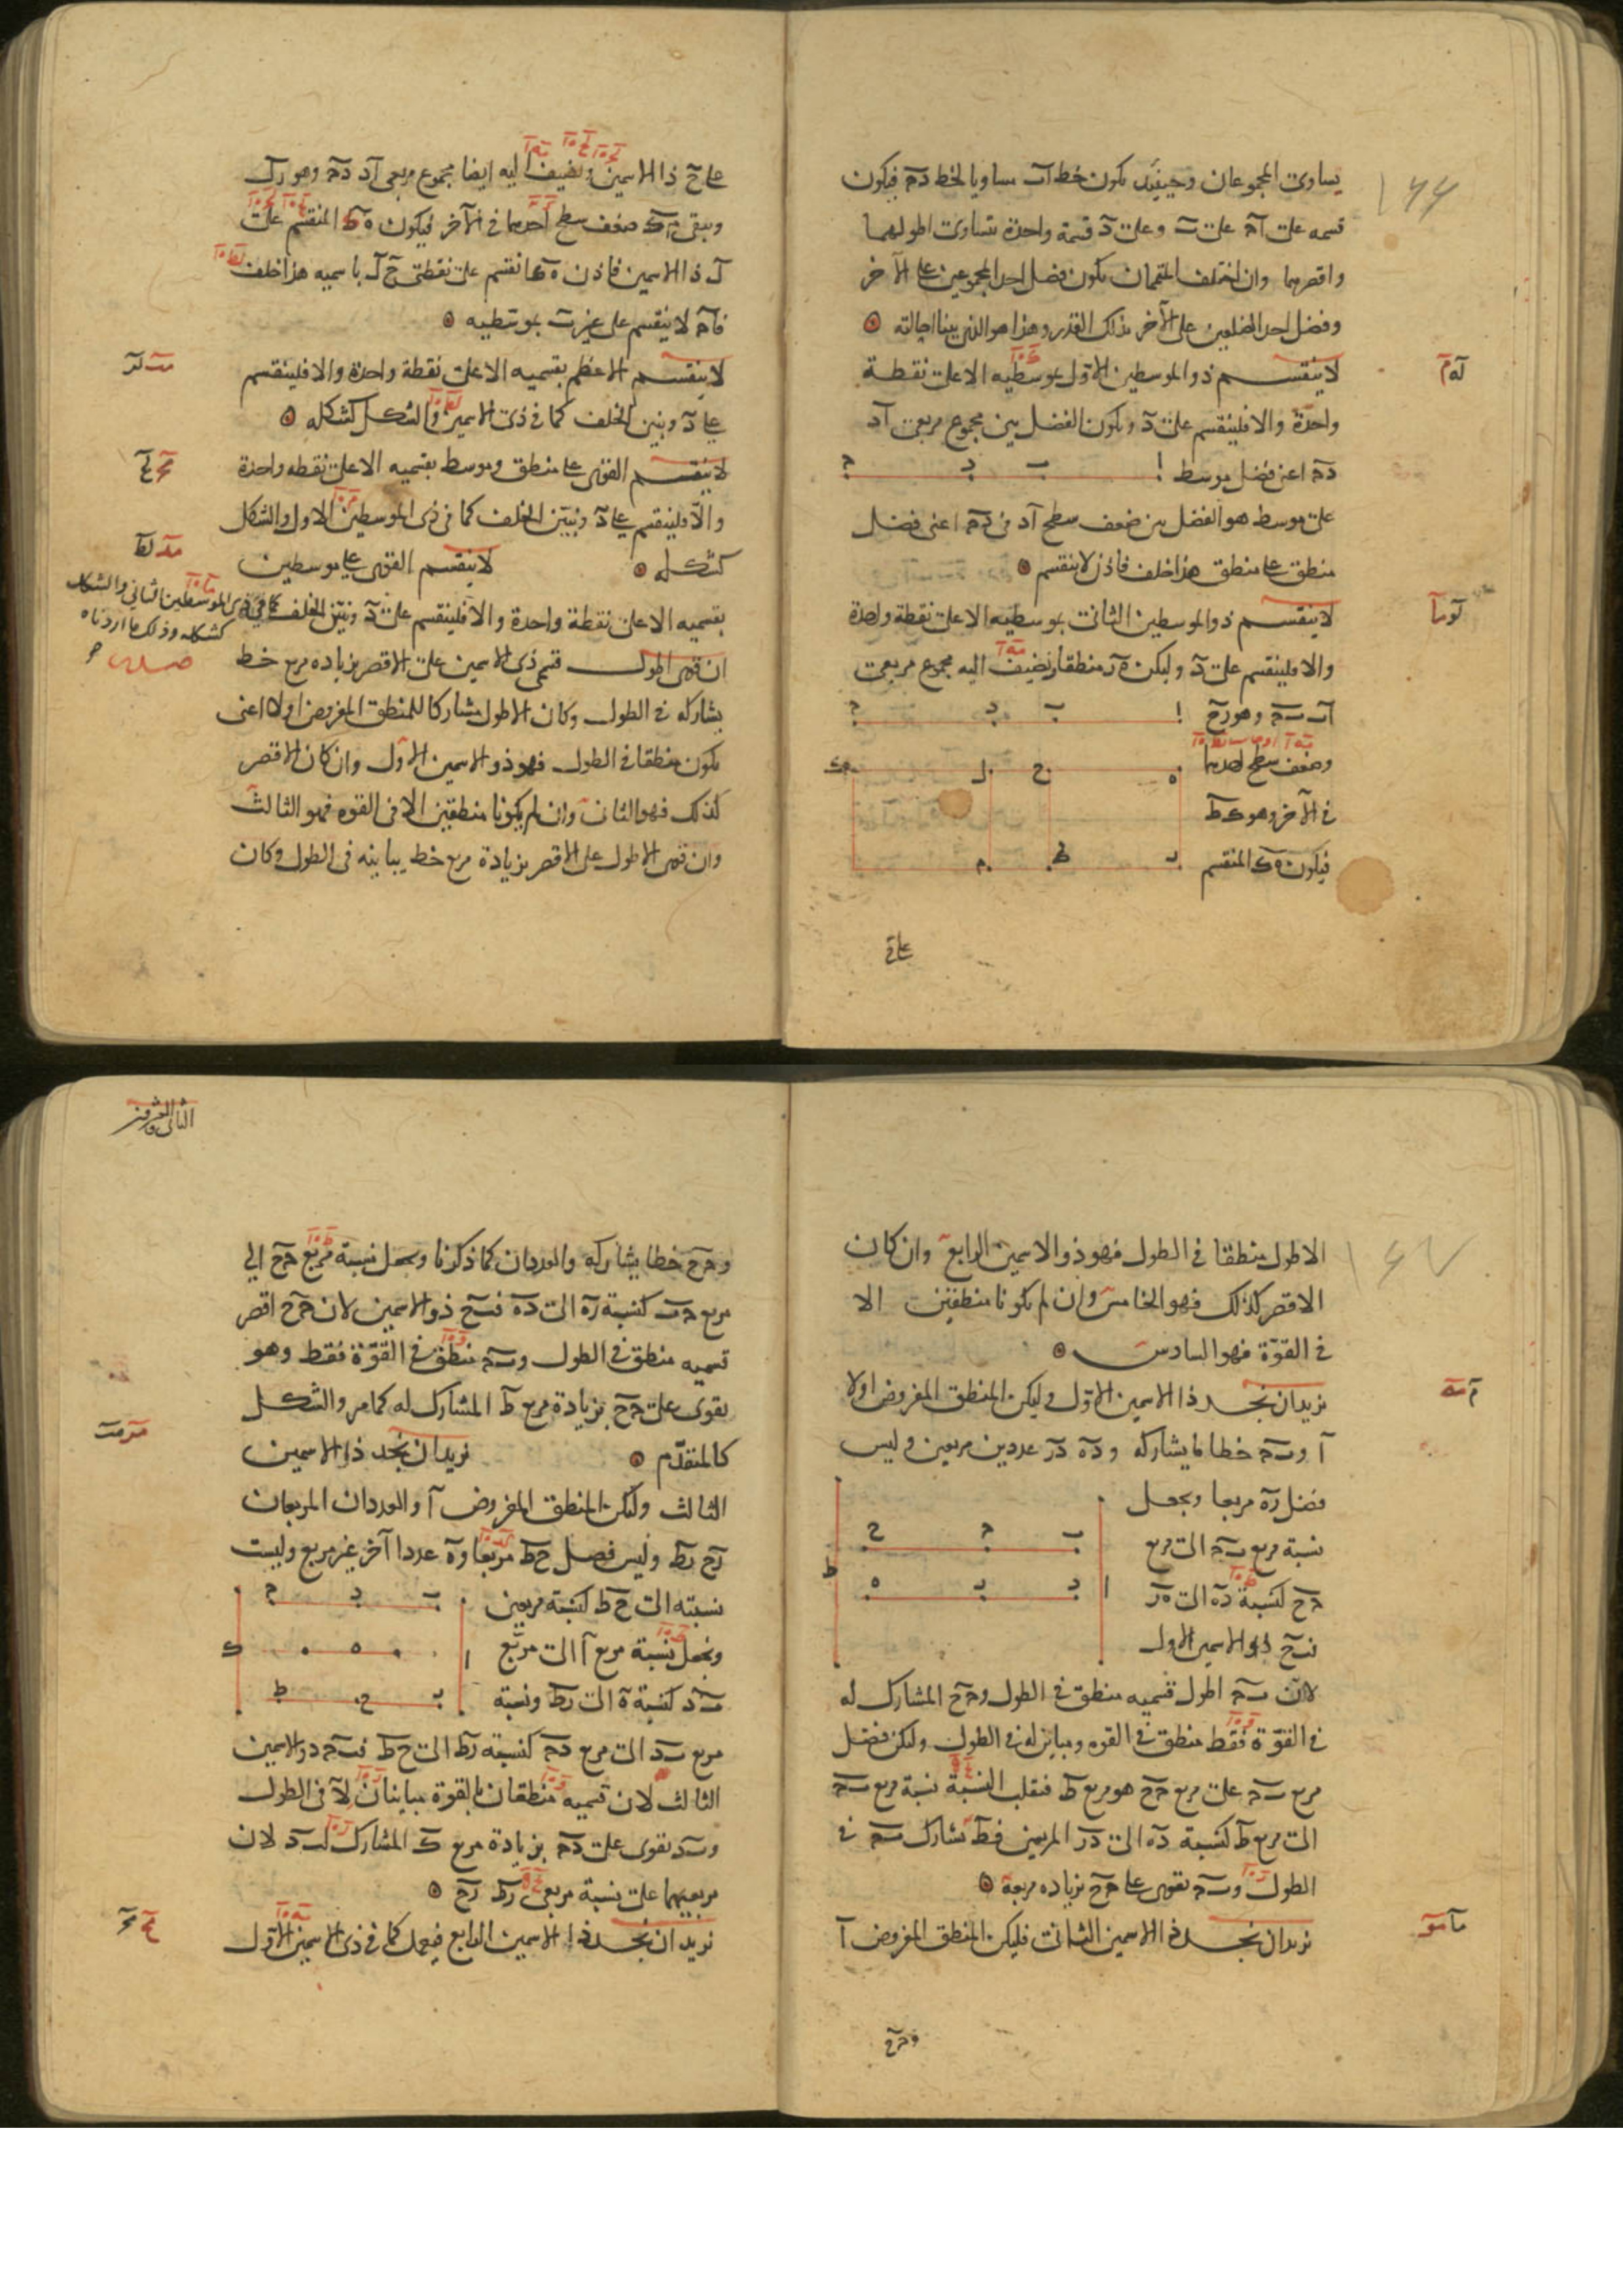 يساوى المجموعان وحينئذ يكون خط اب مساويا لخط دج فيكون
قسمه على اج على ب وعلى د قسمة واحدة تتساوى اطولهما
واقصرهما وان اختلف القسمان يكون فضل احد المجموعين على الآخر
وفضل احد الضلعين على الآخر بذلك القدر وهذا هو الذى بينا احالته
له م
لا ينقسم ذو الموسطين الاول بموسطيه الا على نقطة
واحدة والا فلينقسم على د ويكون الفضل بين مجموع مربعى اد
دج اعنى فضل موسط
ا ب د ج
على موسط هو الفضل بين ضعف سطح اد فى دج اعنى فضل
منطق على منطق هذا خلف فاذن لا ينقسم
لو ما
لا ينقسم ذو الموسطين الثانى بموسطيه الا على نقطة واحدة
والا فلينقسم على د وليكن ه ر منطقا ونضيف اليه مجموع مربعى
اب ب ج وهو رح
ا ب د ج
وضعف سطح احدهما
ه ح ل ك
فى الآخر وهو ط ك
فيكون ه ك المنقسم
ر ط م
على ح
على ح ذا الاسمين ونضيف اليه ايضا مجموع مربعى اد دج وهو رل
ويبقى م ك ضعف سطح احدهما فى الآخر فيكون ه ك المنقسم على
ل ذا الاسمين فاذن ه ك انقسم على نقطتى ح ل باسميه هذا خلف
فاج لا ينقسم على غير ب بموسطيه
مب لز
لا ينقسم الاعظم بقسميه الا على نقطة واحدة والا فلينقسم
على د ونبين الخلف كما فى ذى الاسمين والشكل كشكله
مج لح
لا ينقسم القوى على منطق وموسط بقسميه الا على نقطه واحدة
والا فلينقسم على د ونبين الخلف كما فى ذى الموسطين الاول والشكل
كشكله
مد لط
لا ينقسم القوى على موسطين
بقسميه الا على نقطة واحدة والا فلينقسم على د ونبين الخلف كما فى ذى الموسطين الثانى والشكل
كشكله وذلك ما اردناه
ان قوى اطول قسمى ذى الاسمين على الاقصر بزياده مربع خط
يشاركه فى الطول وكان الاطول مشاركا للمنطق المفروض اولا اعنى
يكون منطقا فى الطول فهو ذو الاسمين الاول وان كان الاقصر
كذلك فهو الثانى وان لم يكونا منطقين الا فى القوه فهو الثالث
وان قوى الاطول على الاقصر بزيادة مربع خط يباينه فى الطول وكان
الاطول منطقا فى الطول فهو ذو الاسمين الرابع وان كان
الاقصر كذلك فهو الخامس وان لم يكونا منطقين الا
فى القوة فهو السادس
م مه
نريد ان نجد ذا الاسمين الاول وليكن المنطق المفروض اولا
ا و ب ج خطا ما يشاركه و ده در عددين مربعين وليس
فضل ره مربعا ونجعل
نسبة مربع ب ج الى مربع
ب ج ح
ج ح كنسبة ده الى ه ر
د ر ه
ا
ط
فب ح ذو الاسمين الاول
لان ب ج اطول قسميه منطق فى الطول و ج ح المشارك له
فى القوة فقط منطق فى القوه ومباين له فى الطول وليكن فضل
مربع ب ج على مربع ج ح هو مربع ط فبقلب النسبة نسبة مربع ب ج
الى مربع ط كنسبة ده الى در المربعين فط تشارك ب ج فى
الطول و ب ج تقوى على ج ح بزياده مربعه
ما مو
نريد ان نجد ذا الاسمين الثانى فليكن المنطق المفروض ا
وج ح
الثانى والعشرون
و ج ح خطا يشاركه والعددان كما ذكرنا ونجعل نسبة مربع ج ح الى
مربع ج ب كنسبة ره الى ده فب ح ذو الاسمين لان ج ح اقصر
قسميه منطق فى الطول و ب ج منطق فى القوة فقط وهو
يقوى على ج ح بزيادة مربع ط المشارك له كما مر والشكل
كالمتقدم
مز مب
نريد ان نجد ذا الاسمين
الثالث وليكن المنطق المفروض ا والعددان المربعان
رح رط وليس فضل ح ط مربعا و ه عددا آخر غير مربع وليست
نسبته الى ح ط كنسبة مربعين
ب د ج
ونجعل نسبة مربع ا الى مربع
ا ه ك
ب د كنسبة ه الى رط ونسبة
ر ح ط
مربع ب د الى مربع دج كنسبة رط الى ح ط فب ج ذو الاسمين
الثالث لان قسميه منطقان بالقوة متباينان لا فى الطول
و ب د تقوى على دج بزيادة مربع ك المشارك لب د لان
مربعيهما على نسبة مربعى رط رح
مح مج
نريد ان نجد ذا الاسمين الرابع فيعمل كما فى ذى الاسمين الاول